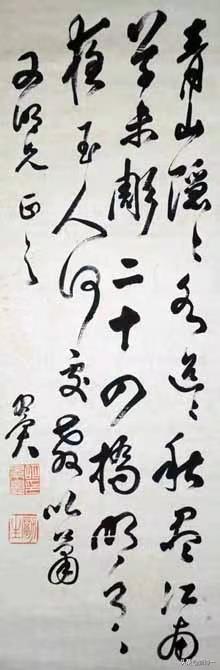 青山隱〻水迢〻秋盡江南
草未彫二十四橋明月
夜玉人何處教吹簫
明兄正之